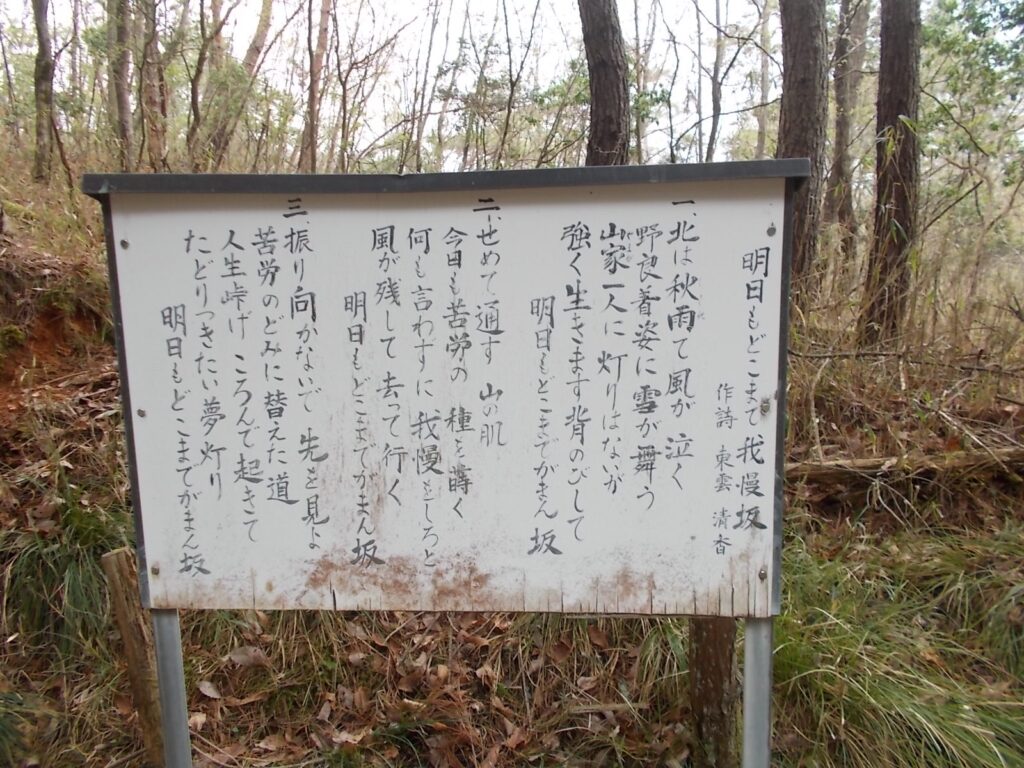 明日もどこまで 我慢坂
作詩 東雲 清香
一、北は秋雨て 風が泣く
野良着姿に 雪が舞う
山家一人に 灯りはないが
強く生きます 背のびして
明日もどこまでがまん坂
二、せめて通す 山の肌
今日も苦労の 種を蒔く
何も言わずに 我慢をしろと
風が残して 去って行く
明日もどこまでがまん坂
三、振り向かないで 先を見よ
苦労のどみに 替えた道
人生峠げ ころんで起きて
たどりつきたい 夢灯り
明日もどこまでがまん坂